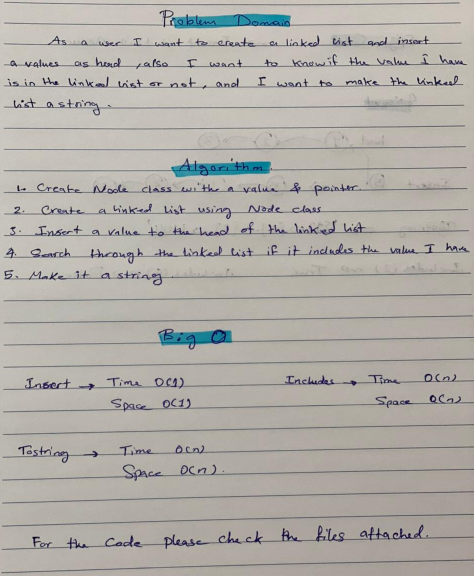 Problem Domain
As a user I want to create a linked list and insert
a values as head, also I want to know if the value I have
is in the linked list or not, and I want to make the linked
list a string.
Algorithm.
1. Create Node class with a value & pointer.
2. Create a linked list using Node class
3. Insert a value to the head of the linked list
4. Search through the linked list if it includes the value I have
5. Make it a string.
Big O
Insert → Time O(1)
Space O(1)
Includes → Time O(n)
Space O(n)
Tostring → Time O(n)
Space O(n).
For the code please check the files attached.